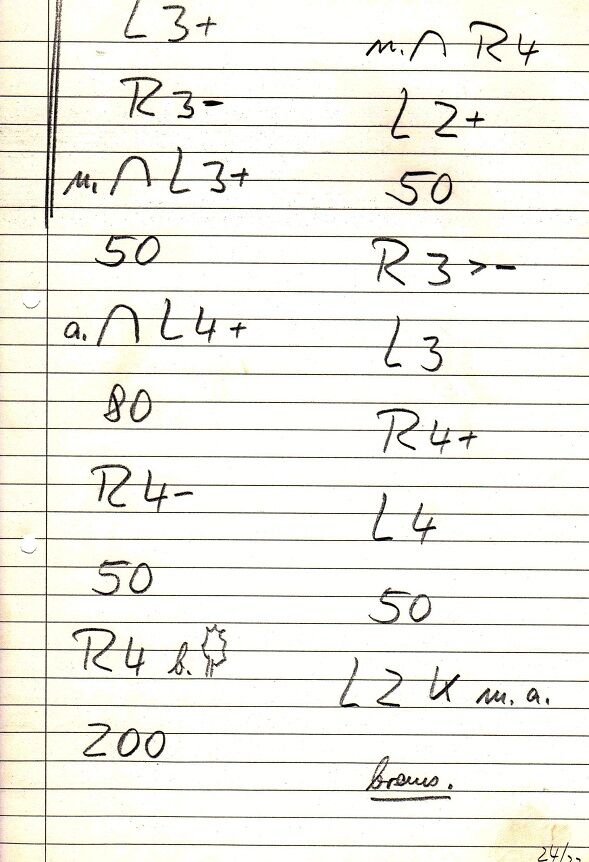 L 3+
R 3-
m. ∩ L 3+
50
a. ∩ L 4+
80
R 4-
50
R 4 b.
200
m. ∩ R 4
L 2+
50
R 3 > -
L 3
R 4+
L 4
50
L 2 K m. a.
brems.
24/